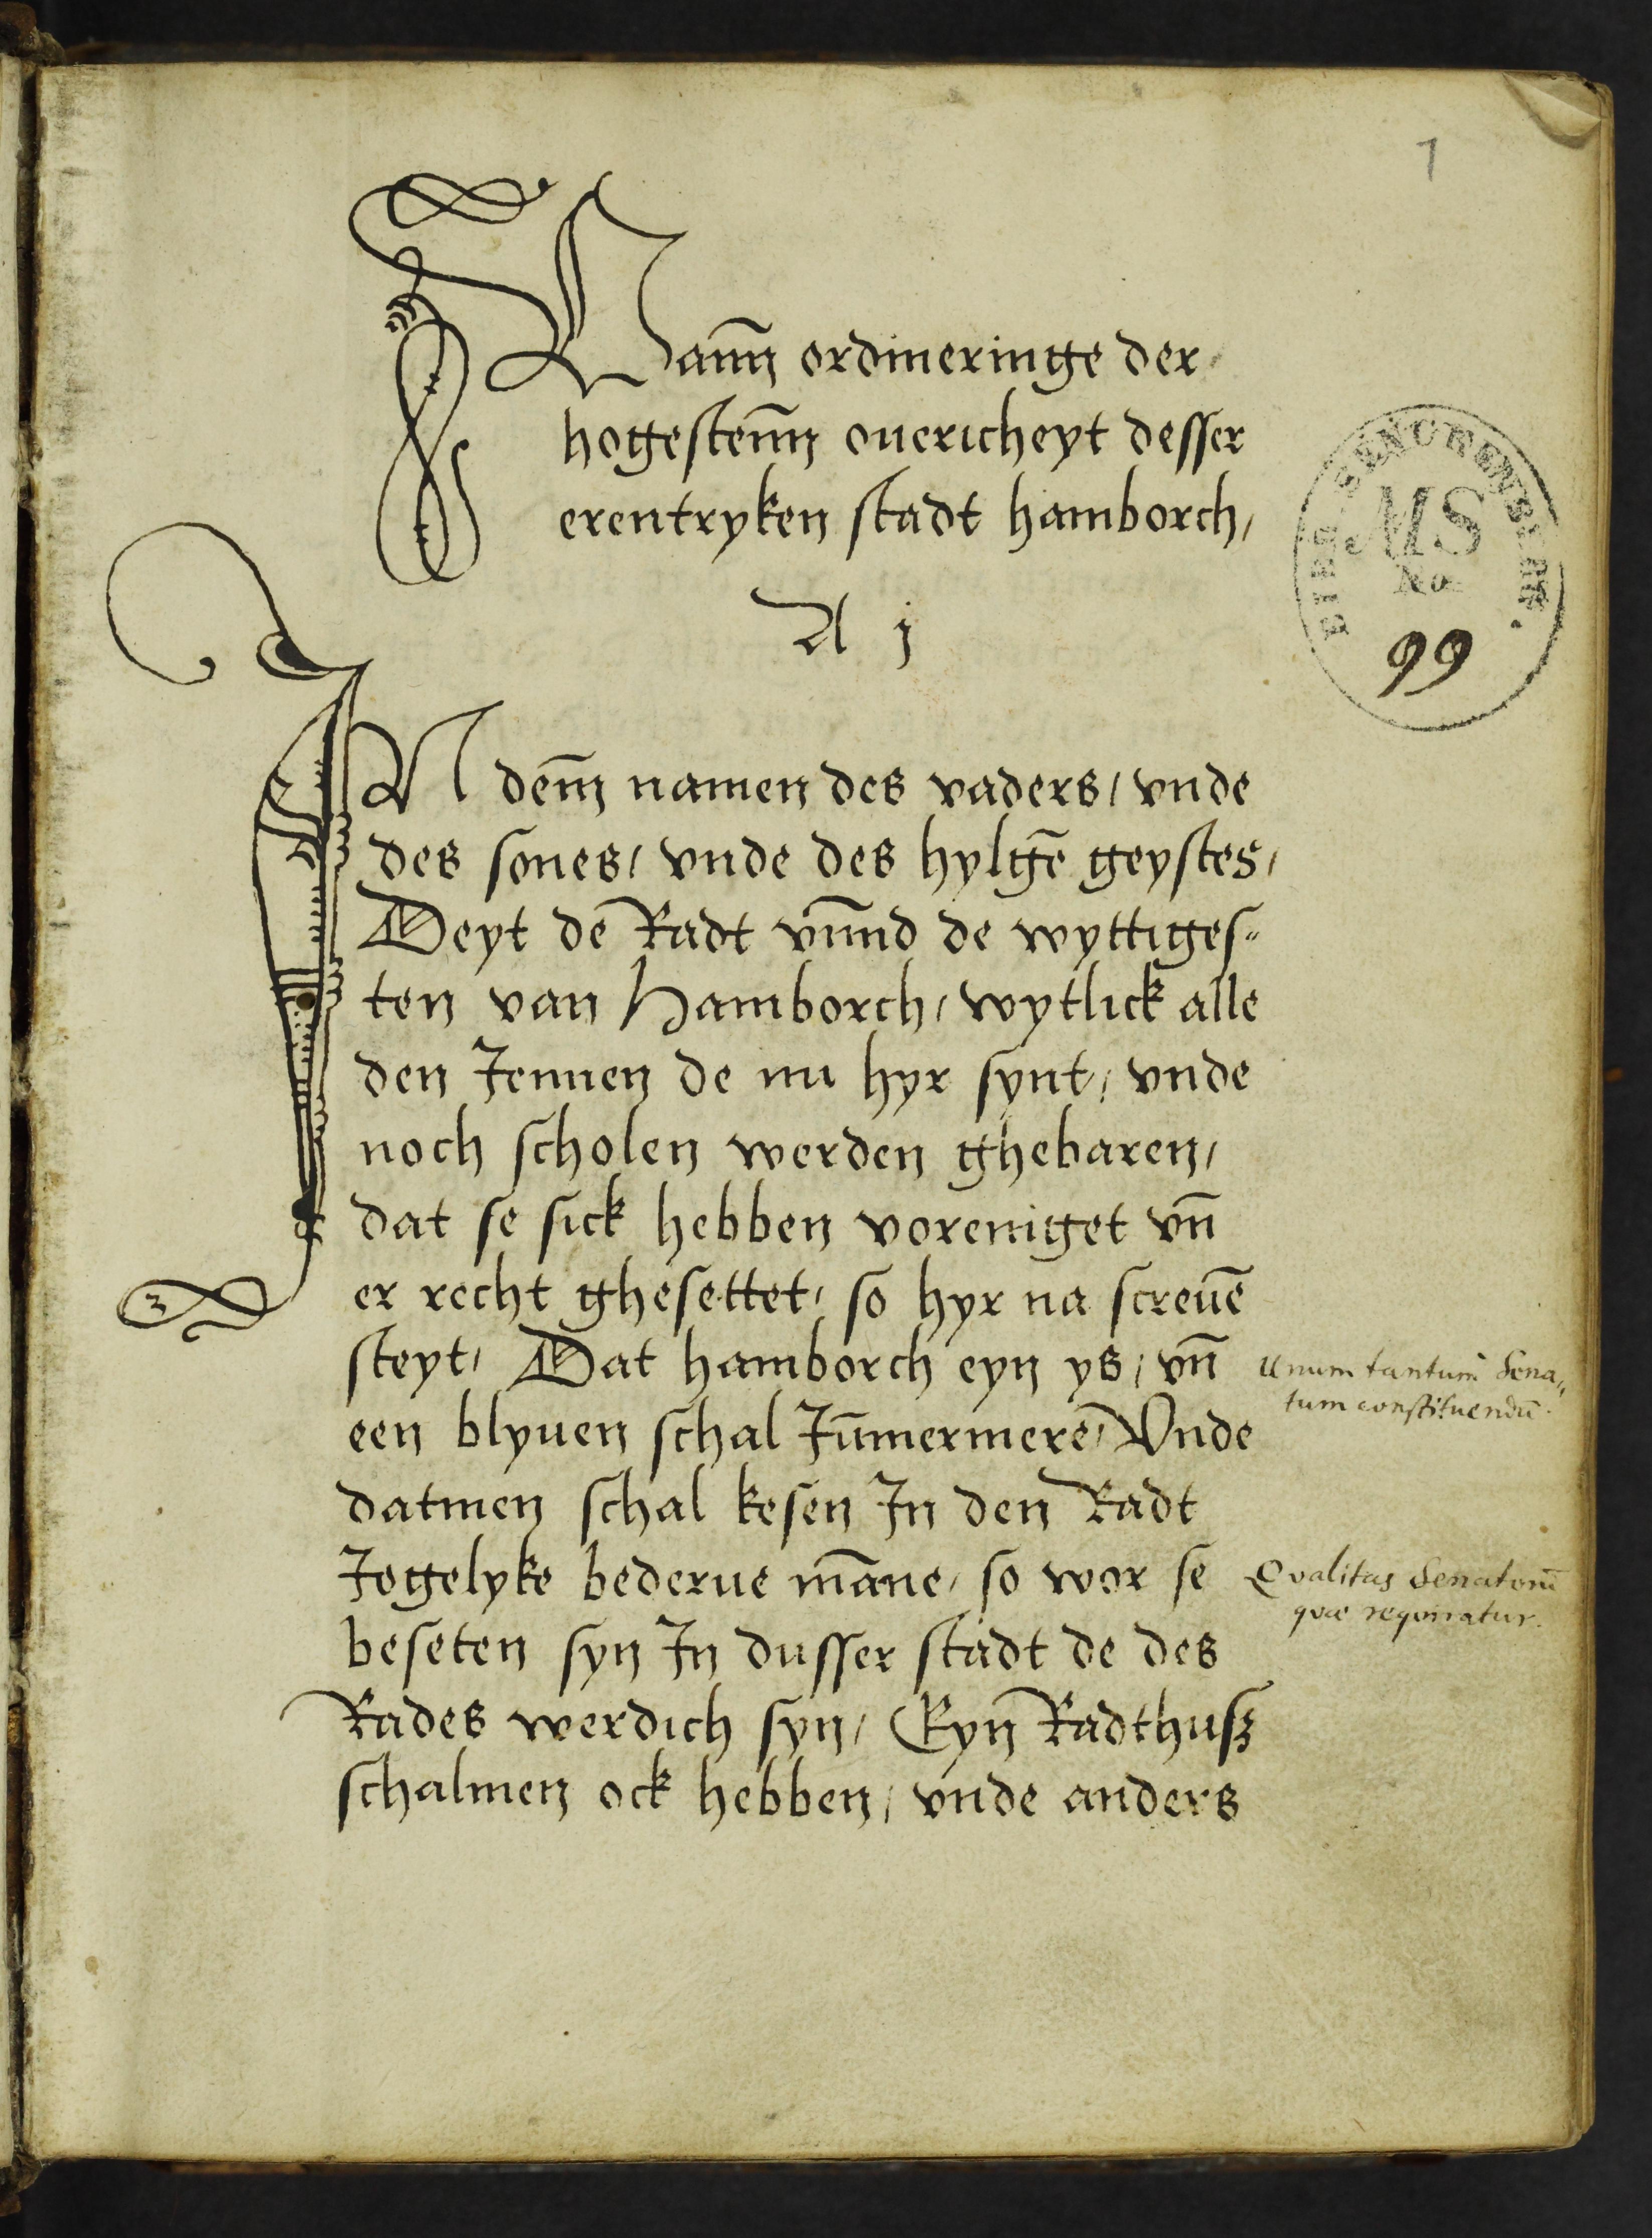 1
Vann̄ ordineringe der
hogestenn̄ ouericheyt desser
erentryken stadt hamborch,
A j
MS
No
99
IN dem̄ namen des vaders, vnde
des sones, vnde des hylgē geystes,
Deyt de Radt vnnd de wyttiges-
ten van Hamborch, wytlick alle
den Jennen de nu hyr synt, vnde
noch scholen werden ghebaren,
dat se sick hebben voreniget vn̄
er recht ghesettet, so hyr na screuē
steyt, Dat hamborch eyn ys, vn̄
Unum tantum Sena„
tum constituendū.
een blyuen schal Jūmermere, Vnde
datmen schal kesen In den Radt
Jegelyke bederue māne, so wor se
Qvalitas Senatorū
qvæ reqviratur.
beseten syn In dusser stadt de des
Rades werdich syn, Eyn Radthusz
schalmen ock hebben, vnde anders